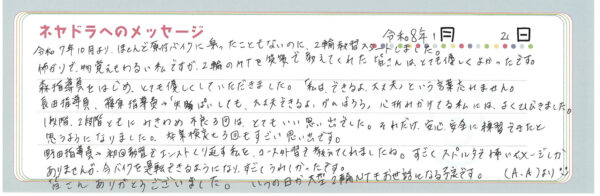 ネヤドラへのメッセージ
令和8年1月21日
令和7年10月より、ほとんど原付バイクに乗ったこともないのに、2輪教習スタートしました。
怖がりで、物覚えもわるい私ですが、2輪のMTを笑顔で教えてくれた皆さんは、とても優しくよかったです。
森指導員をはじめ、とても優しくしていただきました。「私は、できるよ、大丈夫」という言葉忘れません。
長田指導員、篠原指導員の「失敗しても、大丈夫できるよ、がんばろう。」心折れかけてる私には、よくひびきました。
1段階、2段階ともにみきわめ不良3回は、とてもいい思い出でした。それだけ、安心安全に練習できたと
思うようになりました。卒業検定も3回もすごい思い出です。
野田指導員の初回教習でエンストくり返す私を、コース外習で教えてくれましたね。すごくスパルタで怖いイメージしか
ありませんが、今バイクを運転できるようになり、すごくうれしかったです。
皆さんありがとうございました。いつの日か大型2輪MTもお世話になる予定です。(A.Aより)